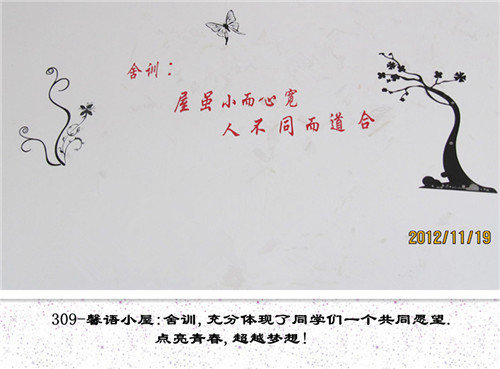 舍训：
屋虽小而心宽
人不同而道合
2012/11/19
309-馨语小屋:舍训,充分体现了同学们一个共同愿望.
点亮青春,超越梦想!